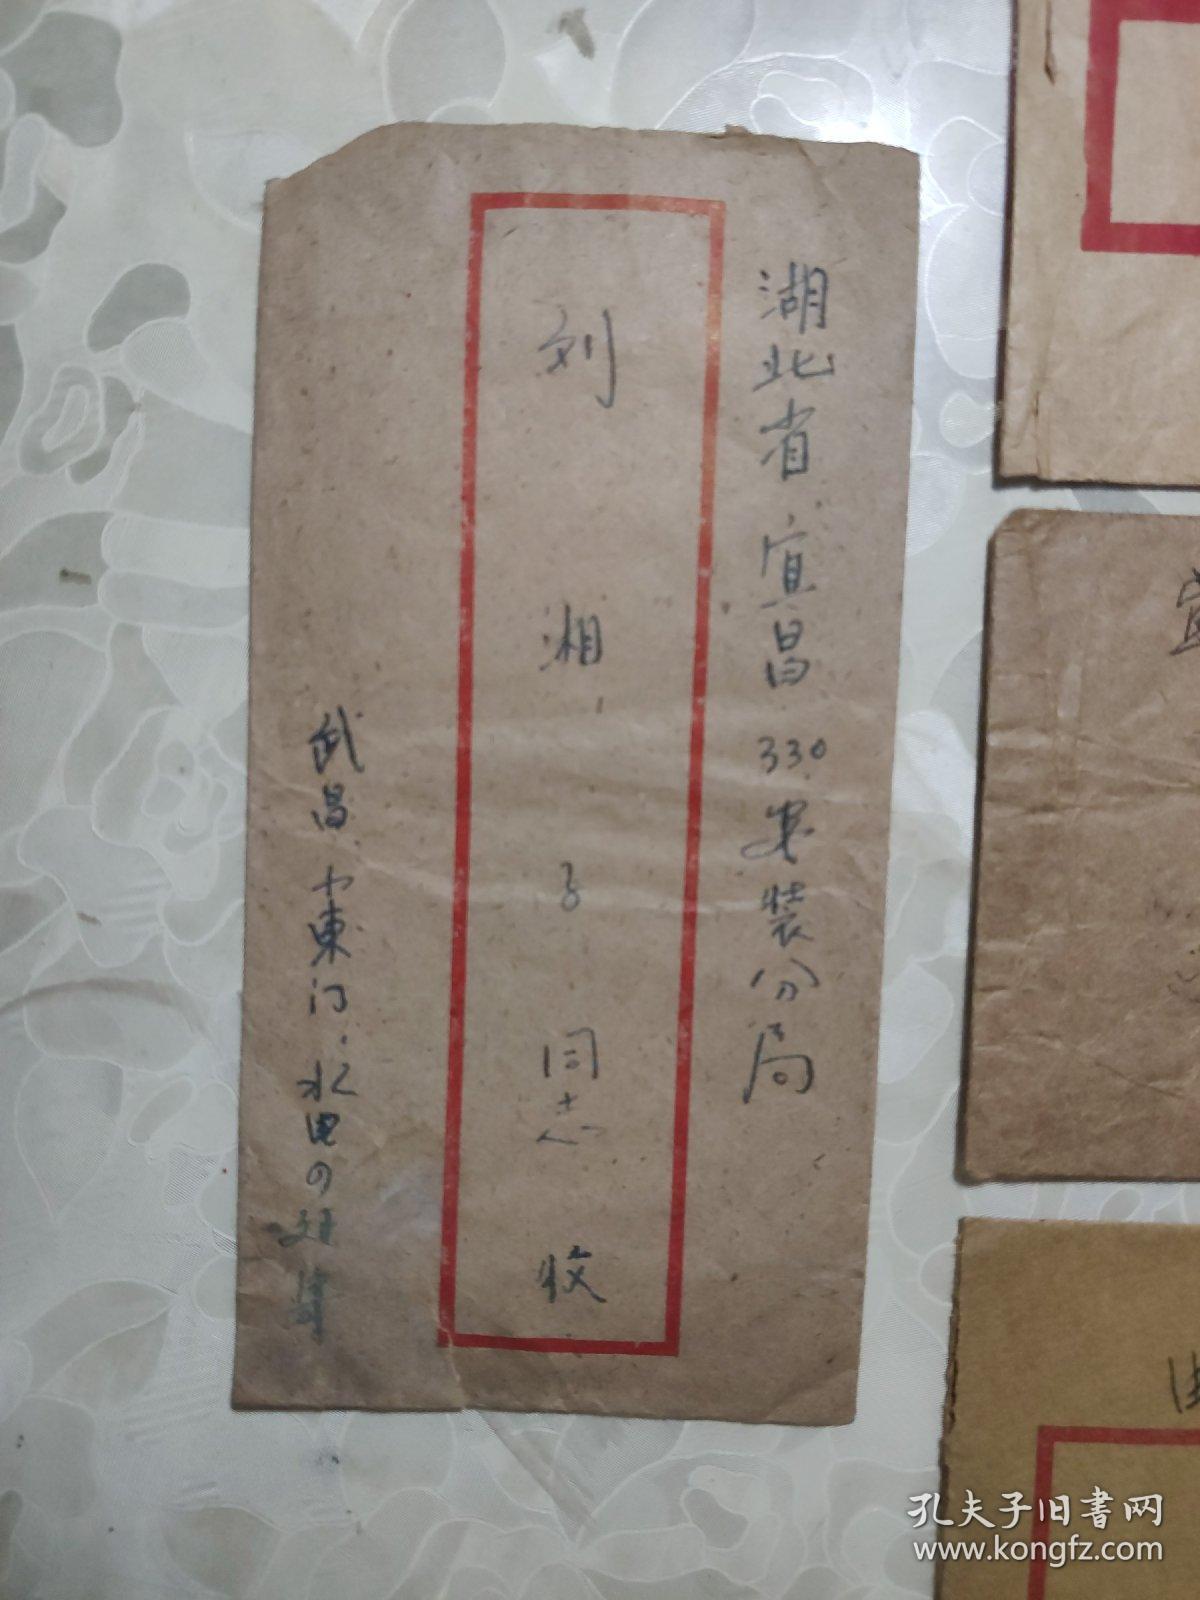 湖北省宜昌330安装分局
刘湘子同志收
武昌中東门水电
宜
孔夫子旧书网
www.kongfz.com